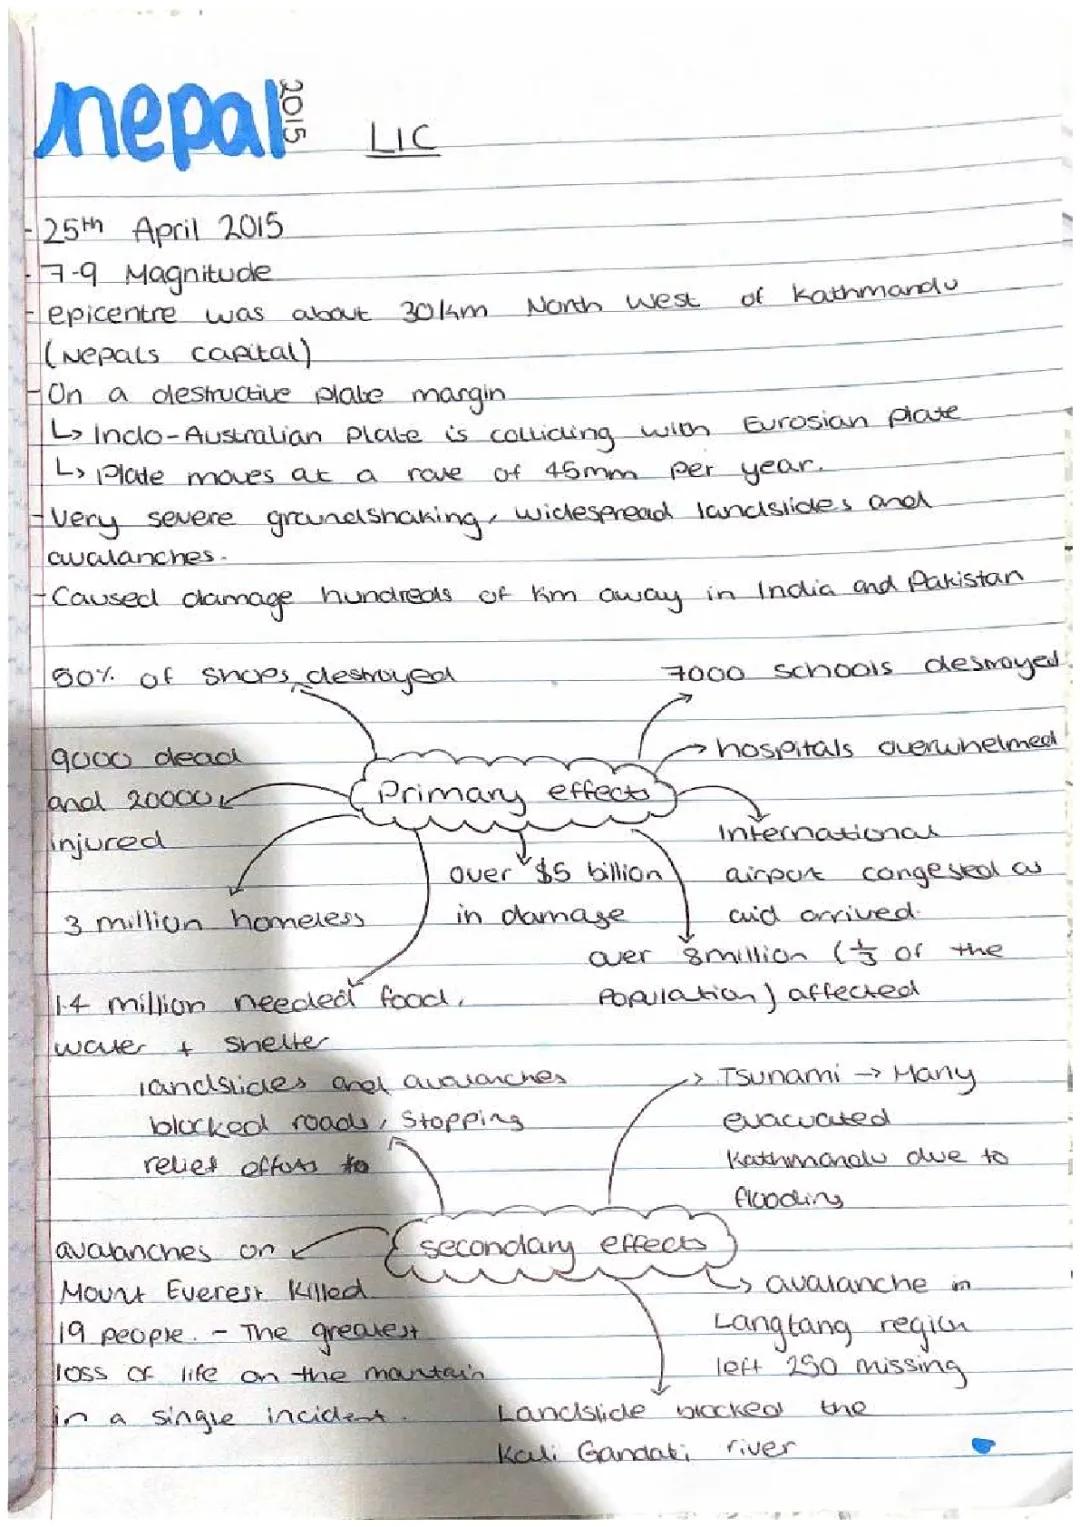 nepal 2015 LIC
- 25th April 2015
- 7.9 Magnitude
- epicentre was about 30km North West of Kathmandu
(Nepals capital)
- On a destructive plate margin
↳ Indo-Australian Plate is colliding with Eurosian plate
↳ Plate moves at a rate of 45mm per year.
- Very severe groundshaking, widespread landslides and
avalanches.
- Caused damage hundreds of km away in India and Pakistan
80% of shops destroyed
7000 schools destroyed
hospitals overwhelmed
9000 dead
and 20000
injured
Primary effects
International
airport congested as
aid arrived.
over $5 billion
in damage
3 million homeless
over 8 million (1/3 of the
Population) affected
1.4 million needed food,
water + shelter
landslides and avalanches
blocked roads, stopping
relief efforts to
Tsunami → Many
evacuated
Kathmandu due to
flooding
secondary effects
avalanches on
Mount Everest Killed
19 people. - The greatest
loss of life on the mountain
in a single incident.
avalanche in
Langtang region
left 250 missing
Landslide blocked the
Kali Gandati river